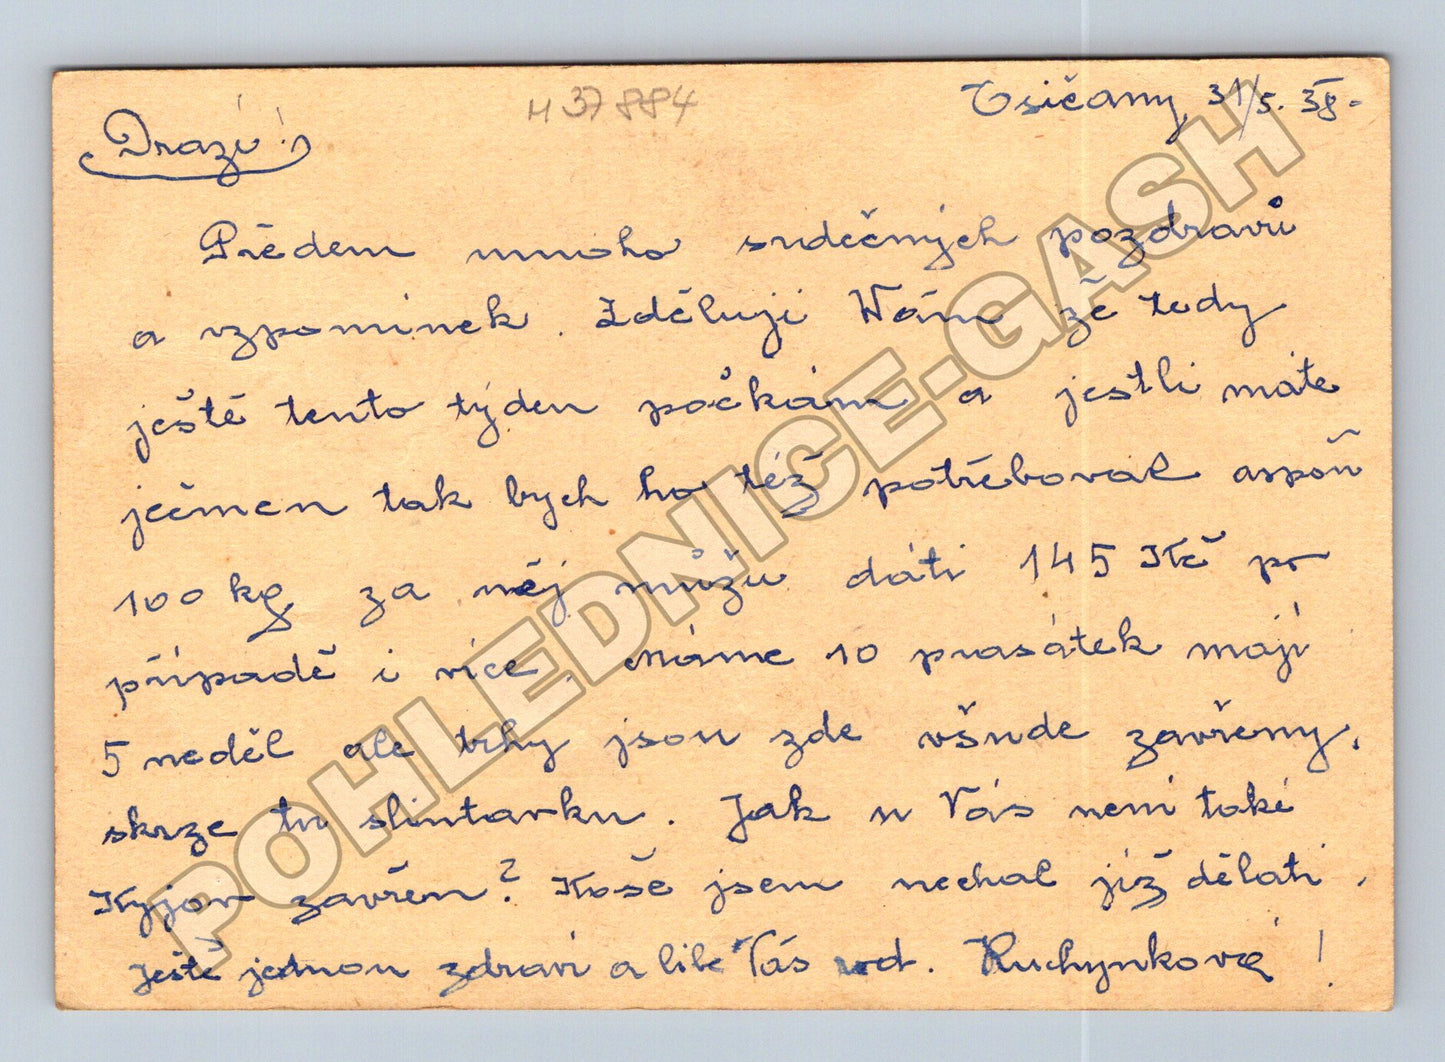 H 37884
Vsičany 31/5. 38-
Drazí!
Předem mnoho srdečných pozdravů
a vzpomínek. Zděluji Vám že tedy
ještě tento týden počkám a jestli máte
ječmen tak bych ho též potřeboval aspoň
100 kg za něj můžu dáti 145 Kč po
případě i více. Máme 10 prasátek mají
5 neděl ale trhy jsou zde všude zavřeny,
skrze tu slintavku. Jak u Vás není také
Kyjov zavřen? Koše jsem nechal již dělati.
Ještě jednou zdraví a líbá Vás rod. Kuchynkova!
POHLEDNICE-GASH